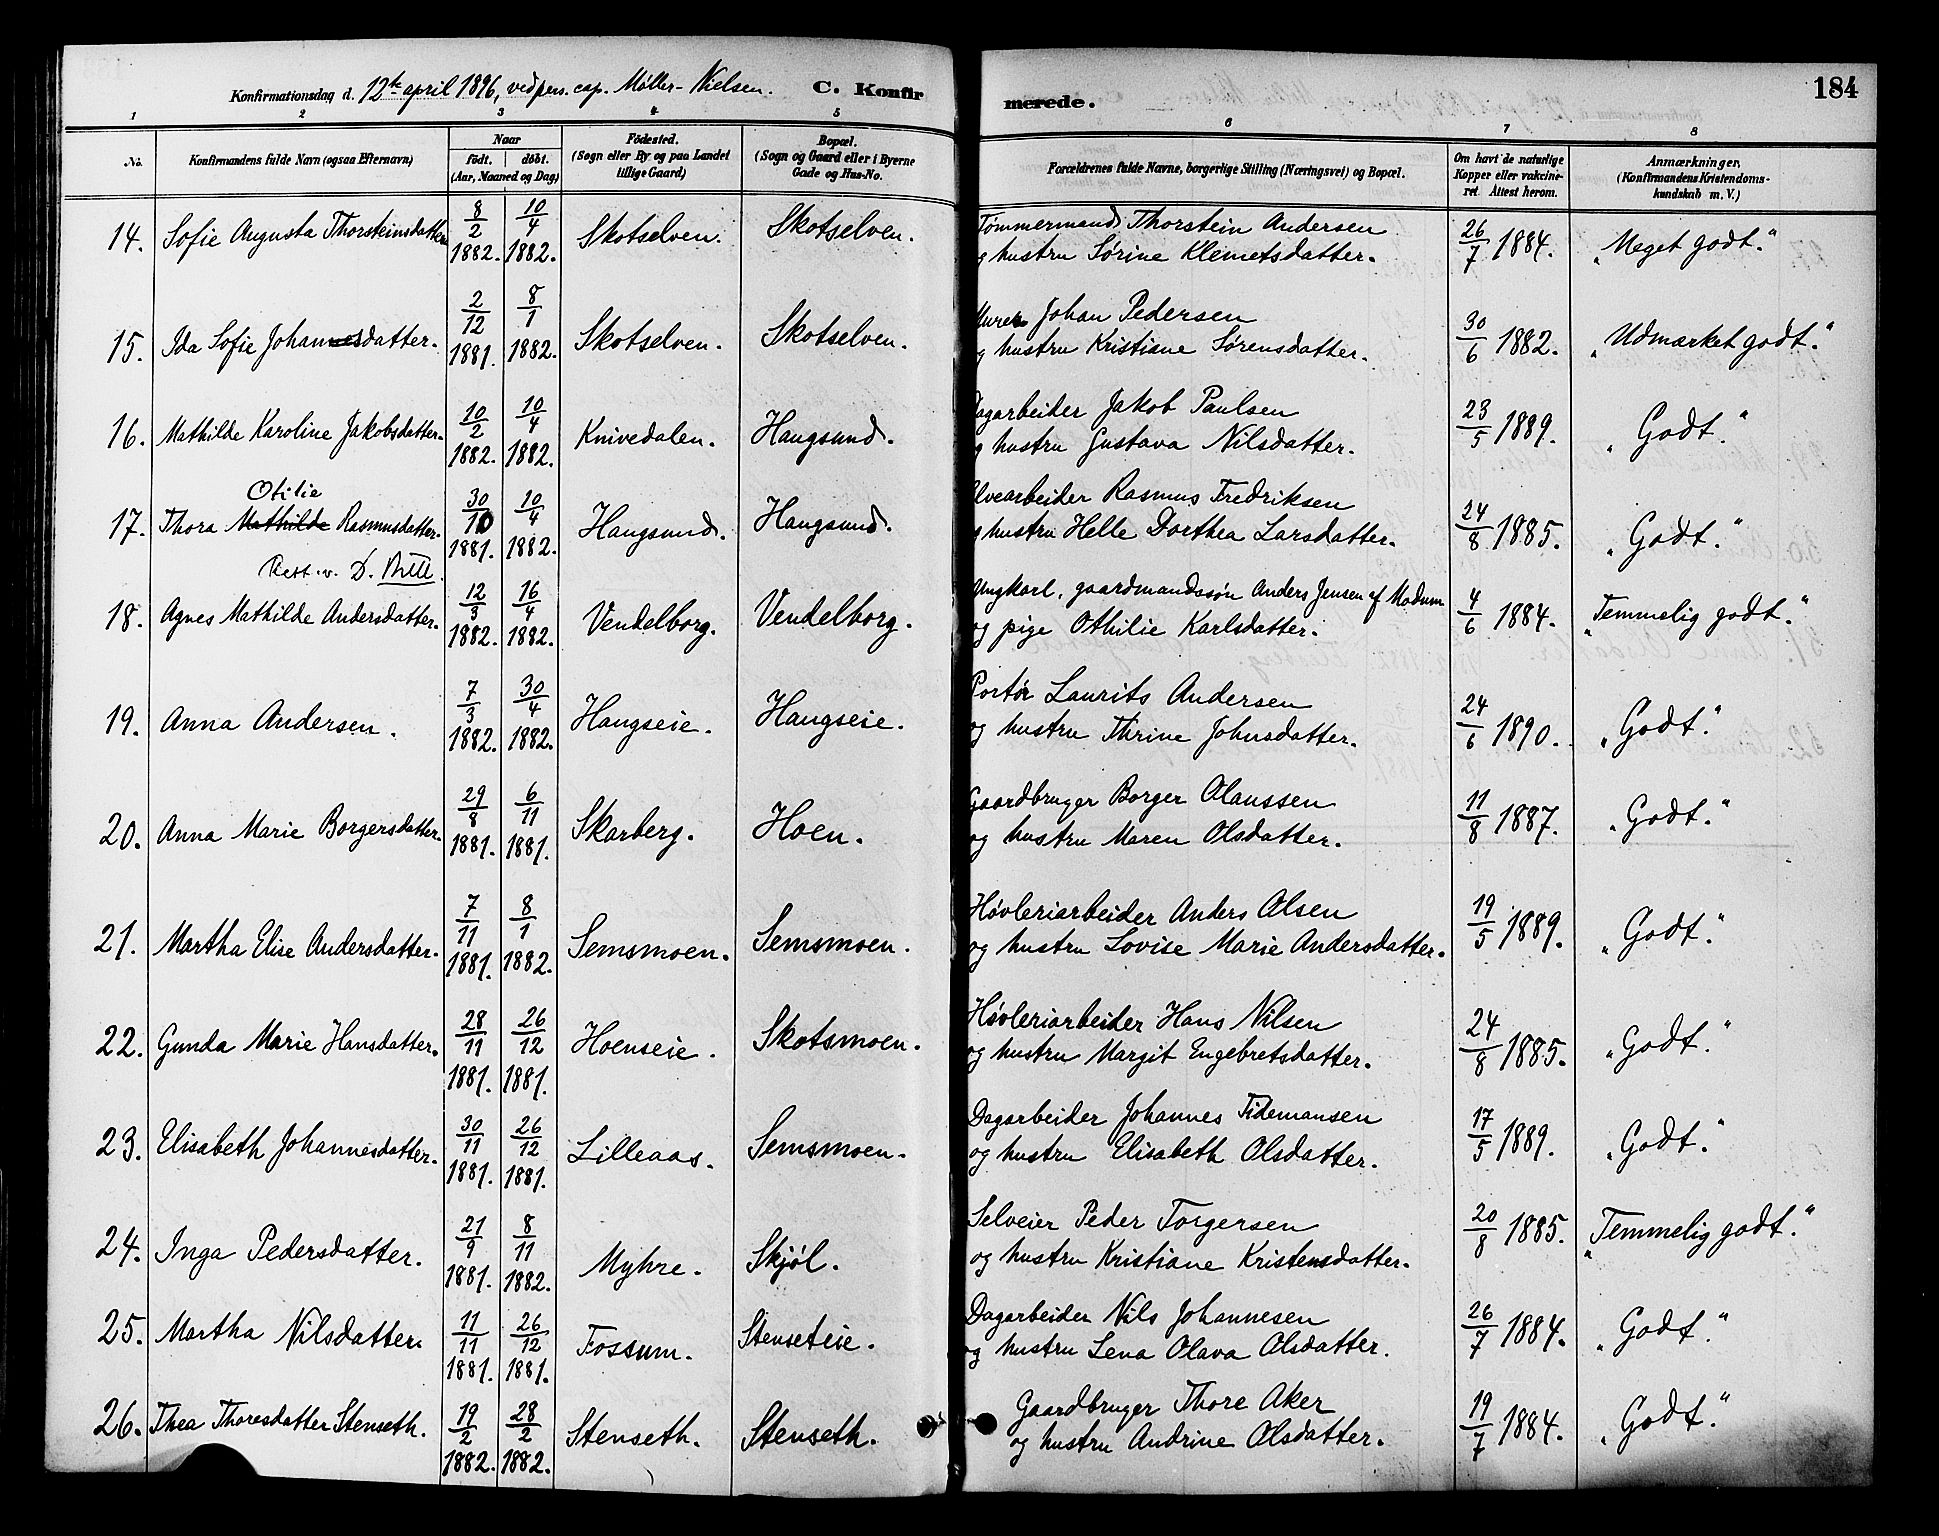 184
Konfirmationsdag d. 12te april 1896, ved pers. cap. Møller-Nielsen. C. Konfirmerede.
1 2 3 4 5 6 7 8
No. Konfirmandens fulde Navn (ogsaa Efternavn) Naar født. døbt. (Aar, Maaned og Dag) Fødested. (Sogn eller By og paa Landet tillige Gaard) Bopæl. (Sogn og Gaard eller i Byerne Gade og Hus-No. Forældrenes fulde Navne, borgerlige Stilling (Næringsvei) og Bopæl. Om havt de naturlige Kopper eller vakcineret. Attest herom. Anmærkninger, (Konfirmandens Kristendomskundskab m. V.)
14. Sofie Augusta Thorsteinsdatter 8/2 1882. 10/4 1882. Skotselven. Skotselven. Tømmermand Thorstein Andersen 26/7 1884. "Meget godt."
og hustru Sørine Klemetsdatter.
15. Ida Sofie Johannesdatter. 2/12 1881. 8/1 1882. Skotselven. Skotselven. Murer Johan Pedersen 30/6 1882. "Udmærket godt."
og hustru Kristiane Sørensdatter.
16. Mathilde Karoline Jakobsdatter. 10/2 1882. 10/4 1882. Knivedalen. Haugsund. Dagarbeider Jakob Paulsen 23/5 1889. "Godt."
og hustru Gustava Nilsdatter.
Otilie
17. Thora Mathilde Rasmusdatter. 30/10 1881. 10/4 1882. Haugsund. Haugsund. Elvearbeider Rasmus Fredriksen 24/8 1885. "Godt."
og hustru Helle Dorthea Larsdatter.
18. Agnes Mathilde Andersdatter. 12/3 1882. 16/4 1882. Vendelborg. Vendelborg. Ungkarl, gaardmandssøn Anders Jensen af Modum 4/6 1884. "Temmelig godt."
og pige Othilie Karlsdatter.
19. Anna Andersen. 7/3 1882. 30/4 1882. Haugseie. Haugseie. Portør Laurits Andersen 24/6 1890. "Godt."
og hustru Thrine Johnsdatter.
20. Anna Marie Borgersdatter. 29/8 1881. 6/11 1881. Skarberg. Hoen. Gaardbruger Borger Olaussen 11/8 1887. "Godt."
og hustru Maren Olsdatter.
21. Martha Elise Andersdatter. 7/11 1881. 8/1 1882. Semsmoen. Semsmoen. Høvleriarbeider Anders Olsen 19/5 1889. "Godt."
og hustru Lovise Marie Andersdatter.
22. Gunda Marie Hansdatter. 28/11 1881. 26/12 1881. Hoenseie. Skotsmoen. Høvleriarbeider Hans Nilsen 24/8 1885. "Godt."
og hustru Margit Engebretsdatter.
23. Elisabeth Johannesdatter. 30/11 1881. 26/12 1881. Lilleaas. Semsmoen. Dagarbeider Johannes Tidemansen 17/5 1889. "Godt."
og hustru Elisabeth Olsdatter.
24. Inga Pedersdatter. 21/9 1881. 8/11 1882. Myhre. Skjøl. Selveier Peder Torgersen 20/8 1885. "Temmelig godt."
og hustru Kristiane Kristensdatter.
25. Martha Nilsdatter. 11/11 1881. 26/12 1881. Fossum. Stenseteie. Dagarbeider Nils Johannesen 26/7 1884. "Godt."
og hustru Lena Olava Olsdatter.
26. Thea Thoresdatter Stenseth. 19/2 1882. 28/2 1882. Stenseth. Stenseth. Gaardbruger Thore Aker 19/7 1884. "Godt."
og hustru Andrine Olsdatter.